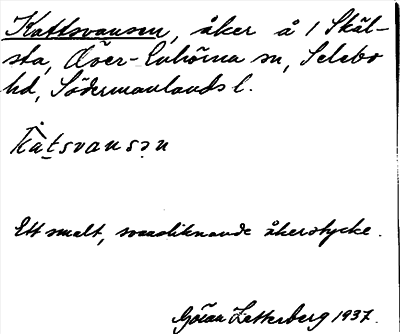 Kattsvansen, åker å 1 Skäl-
sta, Över-Enhörna sn, Selebo
hd, Södermanlands l.
Ka̱tsvansən
Ett smalt, svansliknande åkerstycke.
Göran Zetterberg 1937.